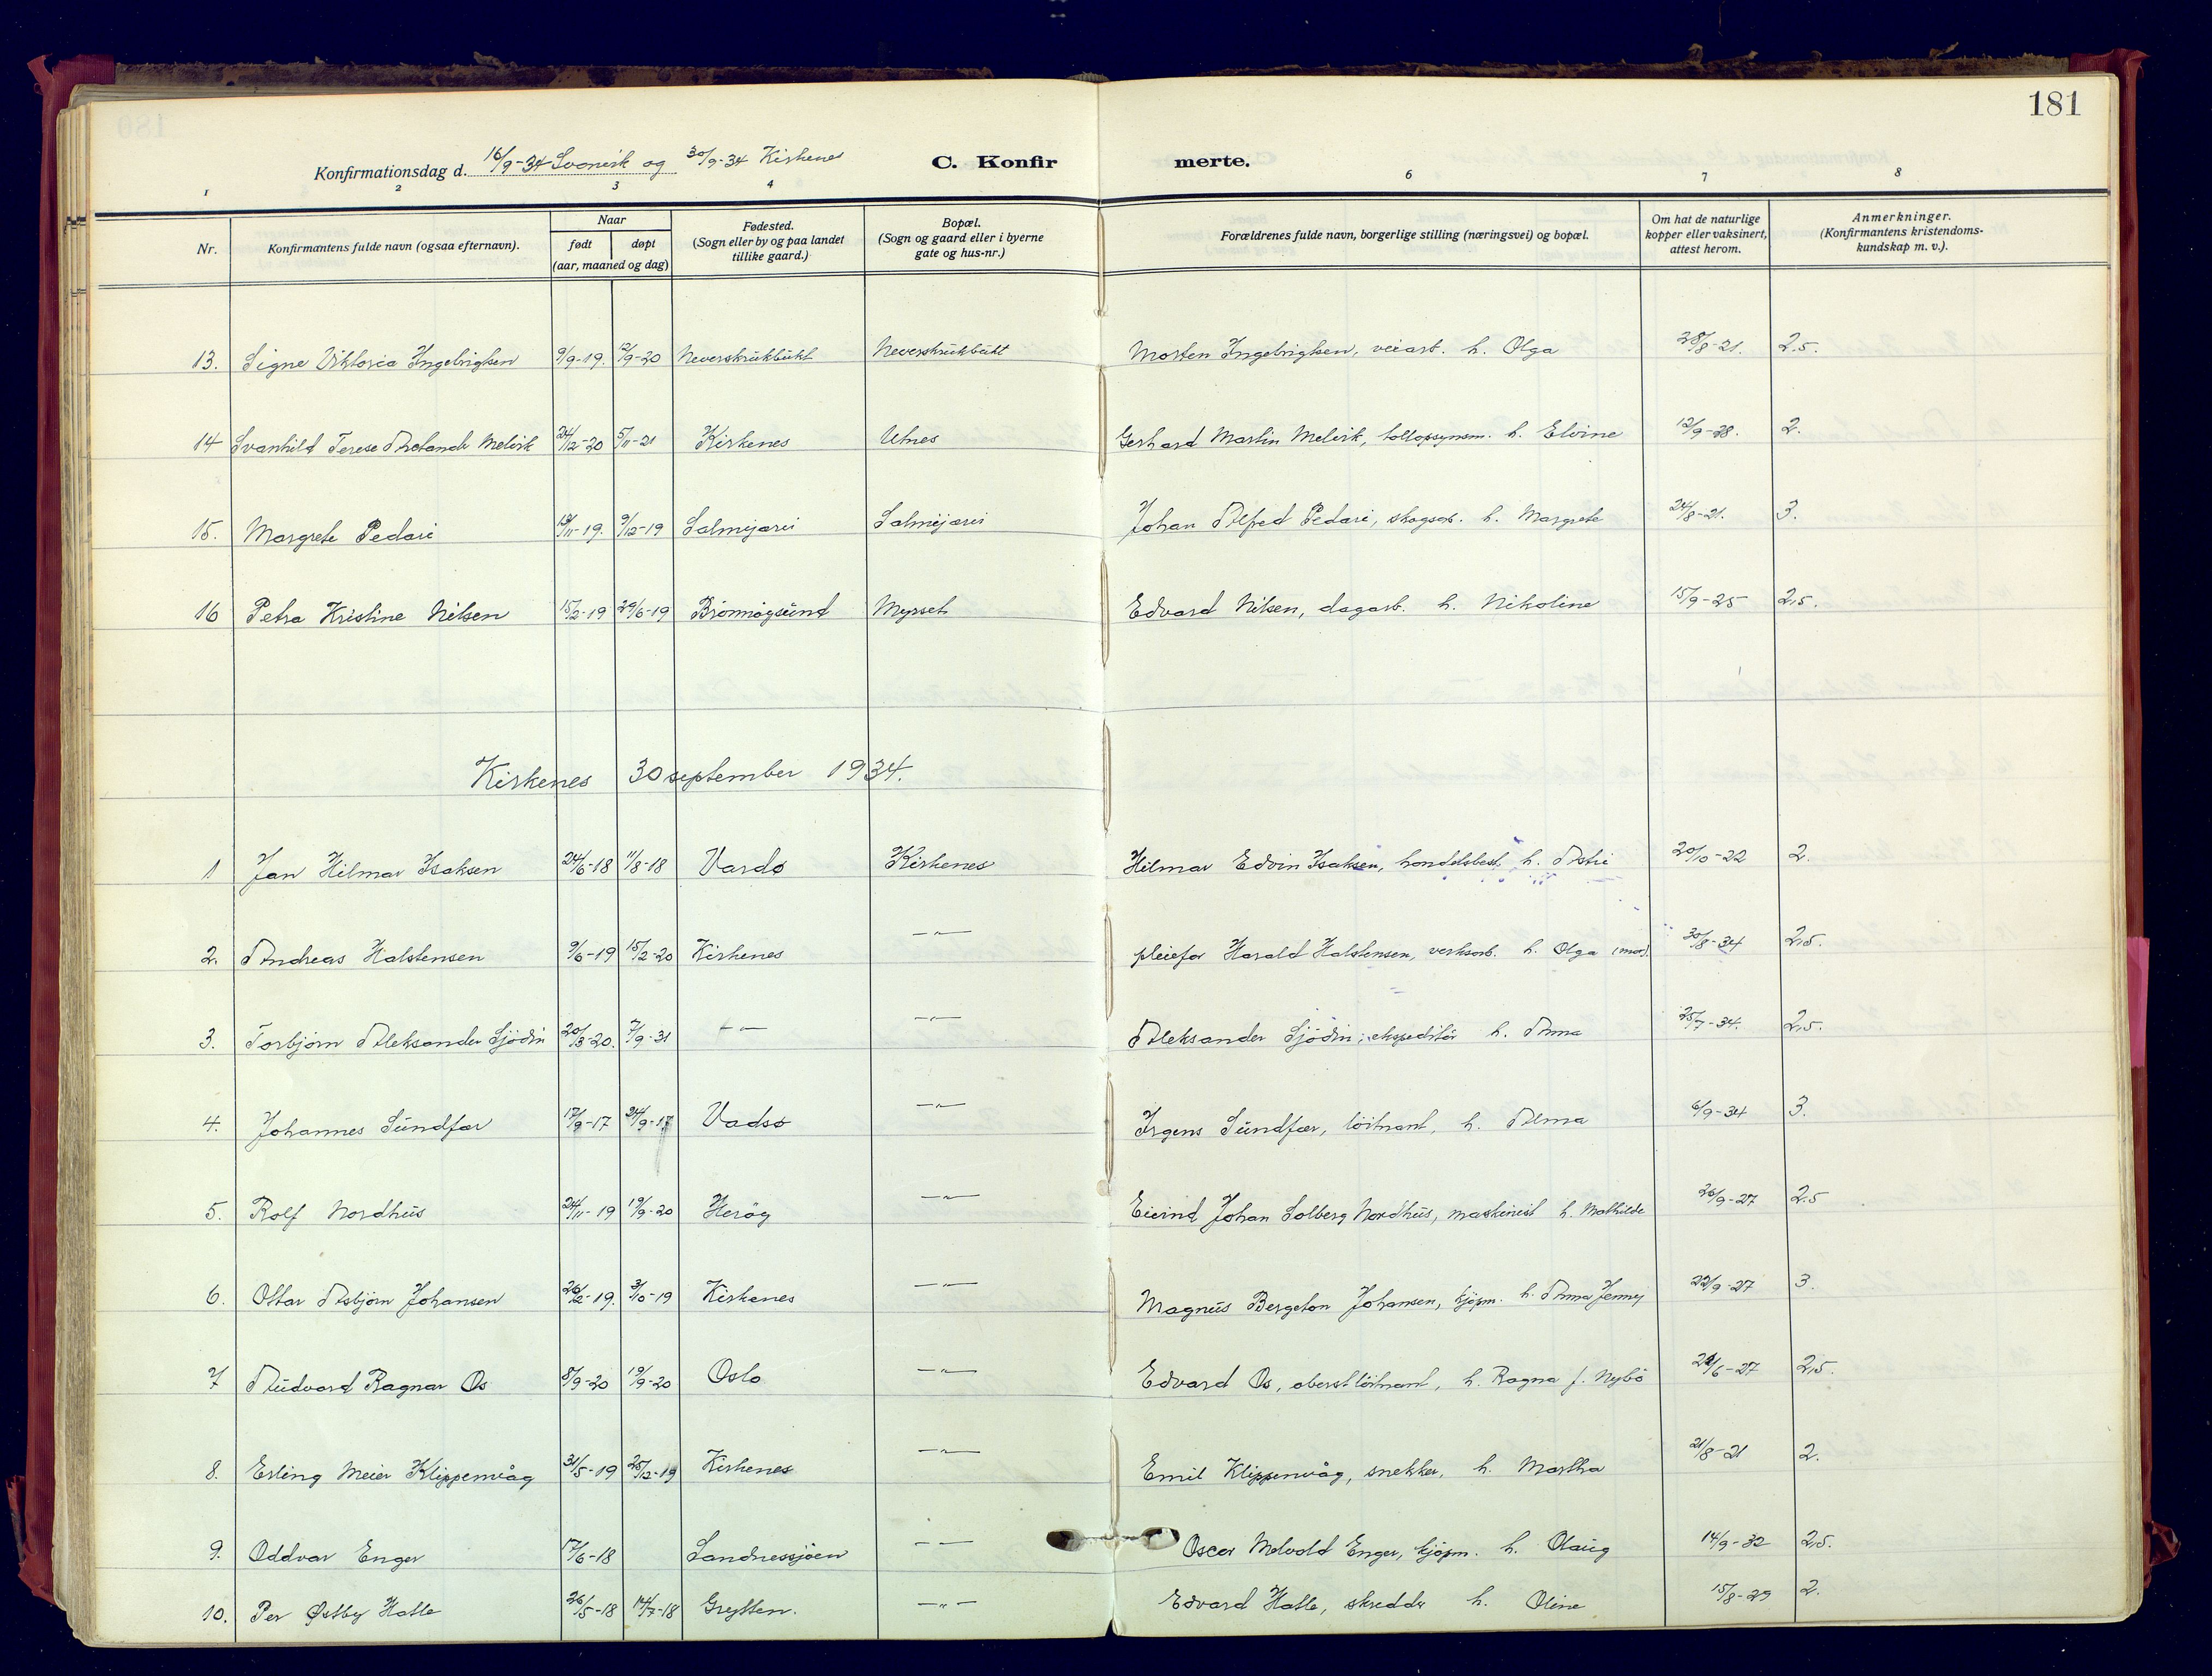 181
Konfirmationsdag d. 16/9-34 Svanvik og 30/9-34 Kirkenes C. Konfirmerte.
1 2 3 4 6 7 8
Nr. Konfirmantens fulde navn (ogsaa efternavn). Naar født døpt (aar, maaned og dag) Fødested. (Sogn eller by og paa landet tillike gaard.) Bopæl. (Sogn og gaard eller i byerne gate og hus-nr.) Forældrenes fulde navn, borgerlige stilling (næringsvei) og bopæl. Om hat de naturlige kopper eller vaksinert, attest herom. Anmerkninger. (Konfirmantens kristendoms-kundskap m. v.).
13. Signe Viktoria Ingebrigtsen 9/9-19. 12/9-20 Neverskrukbukt Neverskrukbukt Morten Ingebrigtsen, veiarb. h. Olga 28/8-21. 2.5.
14 Svanhild Terese Melvik 24/12-20 5/11-21 Kirkenes Utnes Gerhard Martin Melvik, tollopsynsm. h. Elvine 12/9-28. 2.
15. Margrete Pedari 19/11-19. 9/12-19 Salmijarvi Salmijarvi Johan Alfred Pedari, skogsarb. h. Margrete 24/8-21. 3.
16 Petra Kristine Nilsen 15/2-19 29/6-19 Brønnøysund Myrset Edvard Nilsen, dagarb. h. Nikoline 15/9-25 2,5.
Kirkenes 30 september 1934.
1 Jan Hilmar Isaksen 24/6-18 11/8-18 Vardø Kirkenes Hilmar Edvin Isaksen, handelsbest. h. Astri 20/10-22 2.
2. Andreas Halstensen 9/6-19 15/2-20 Kirkenes —"— pleiefar Harald Halstensen, verksarb. h. Olga (mor). 30/8-34 2,5.
3. Torbjørn Aleksander Sjödin 20/3-20. 7/9-31 —"— —"— Aleksander Sjödin, ekspeditør h. Anna 25/7-34. 2,5.
4. Johannes Sundfær 17/9-17 24/9-17 Vadsø —"— Irgens Sundfær, löitnant, h. Alma 6/9-34 3.
5. Rolf Nordhus 24/11-19 19/9-20 Herøy —"— Eivind Johan Solberg Nordhus, maskinist h. Mathilde 26/9-27 2.5
6. Ottar Asbjørn Johansen 26/2-19. 3/10-19 Kirkenes —"— Magnus Bergeton Johansen, kjøpm. h. Anna Jenny 22/9-27 3.
7 Audvard Ragnar Os 8/9-20 19/9-20 Oslo —"— Edvard Os, oberstløitnant, h. Ragna f. Nybö 29/6-27 2,5.
8. Erling Meier Klippenvåg 31/5-19 25/12-19 Kirkenes —"— Emil Klippenvåg, snekker, h. Martha 21/8-21 2.
9. Oddvar Enger 17/6-18 Sandnessjøen — — Oscar Melvold Enger, kjøpm. h. Olaug 14/9-32 2,5.
10. Per Østby Hatle 26/5-18 14/7-18 Grytten. —"— Edvard Hatle, skredder h. Oline 15/8-29 2.